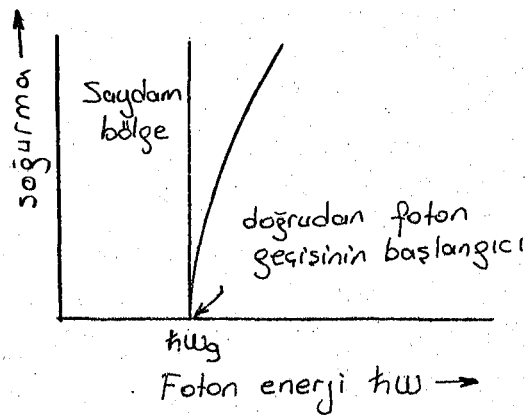 soğurma
Saydam
bölge
doğrudan foton
geçişinin başlangıcı
ħωg
Foton enerji ħω